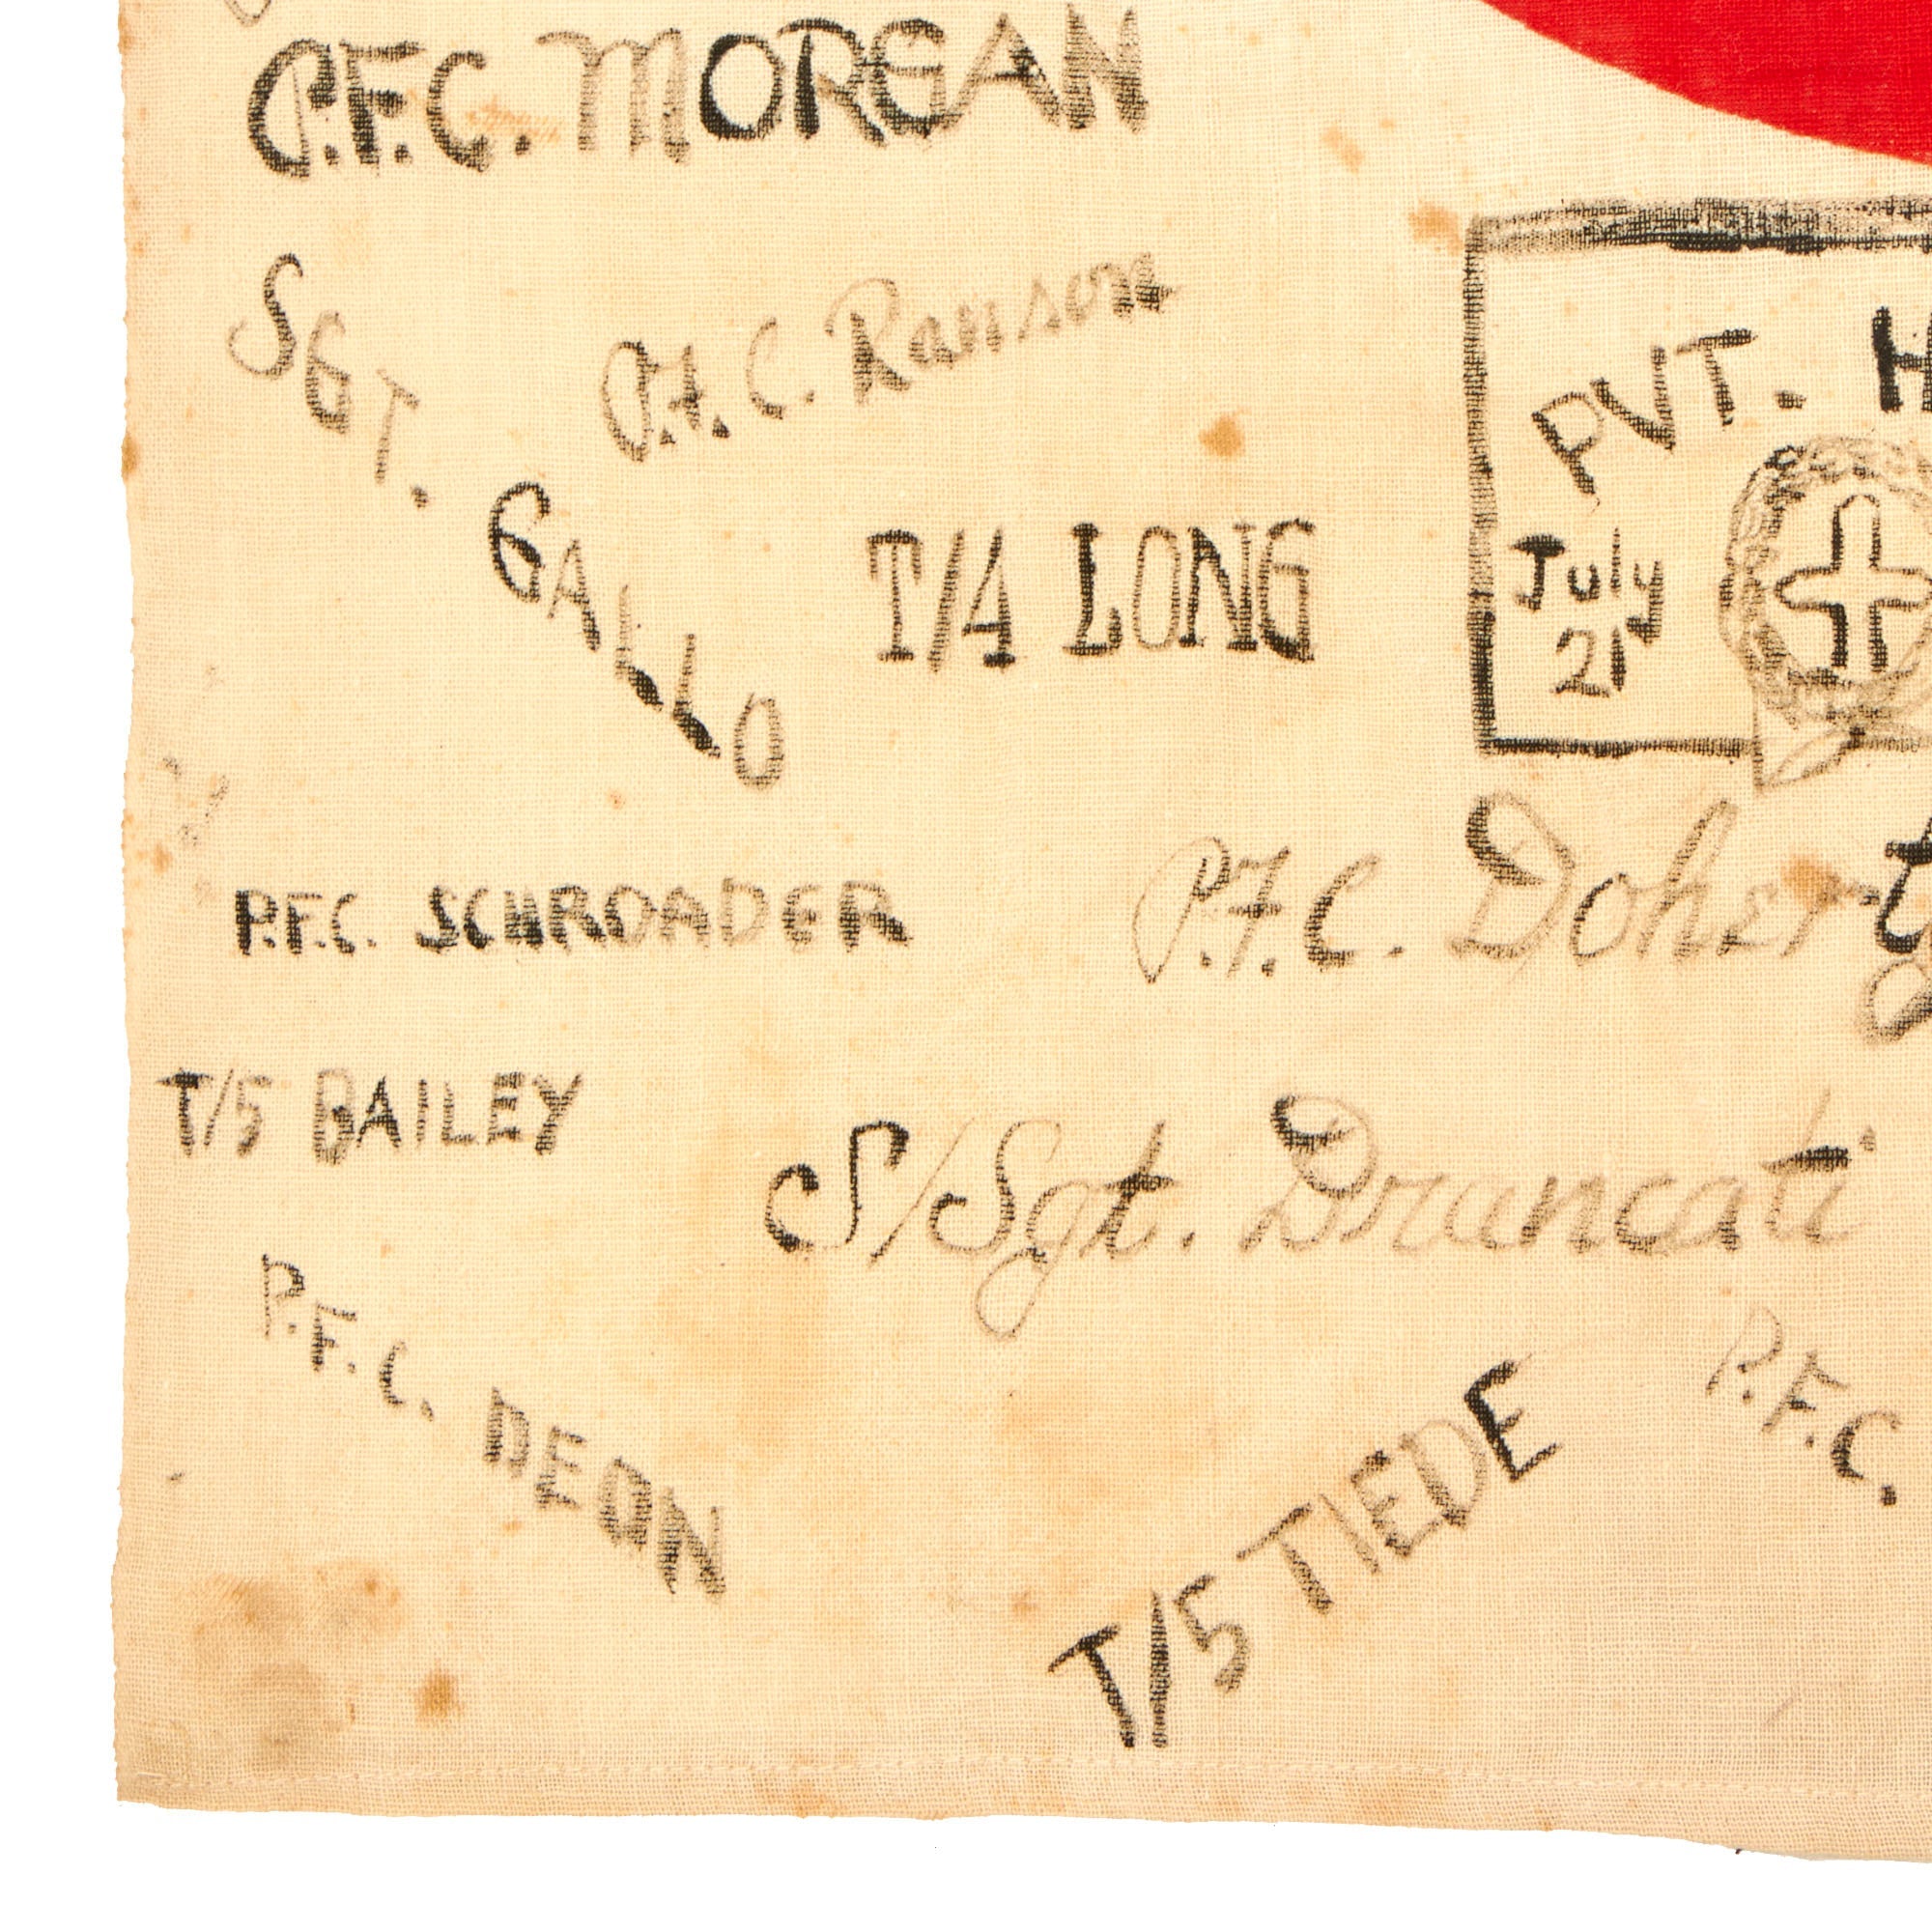 P.F.C. MORGAN
SGT. GALLO
P.F.C. Ranson
T/4 LONG
PVT. H
July
21
P.F.C. SCHROADER
P.F.C. Doherty
T/5 BAILEY
S/Sgt. Druncati
P.F.C. DEON
T/5 TIEDE
P.F.C.